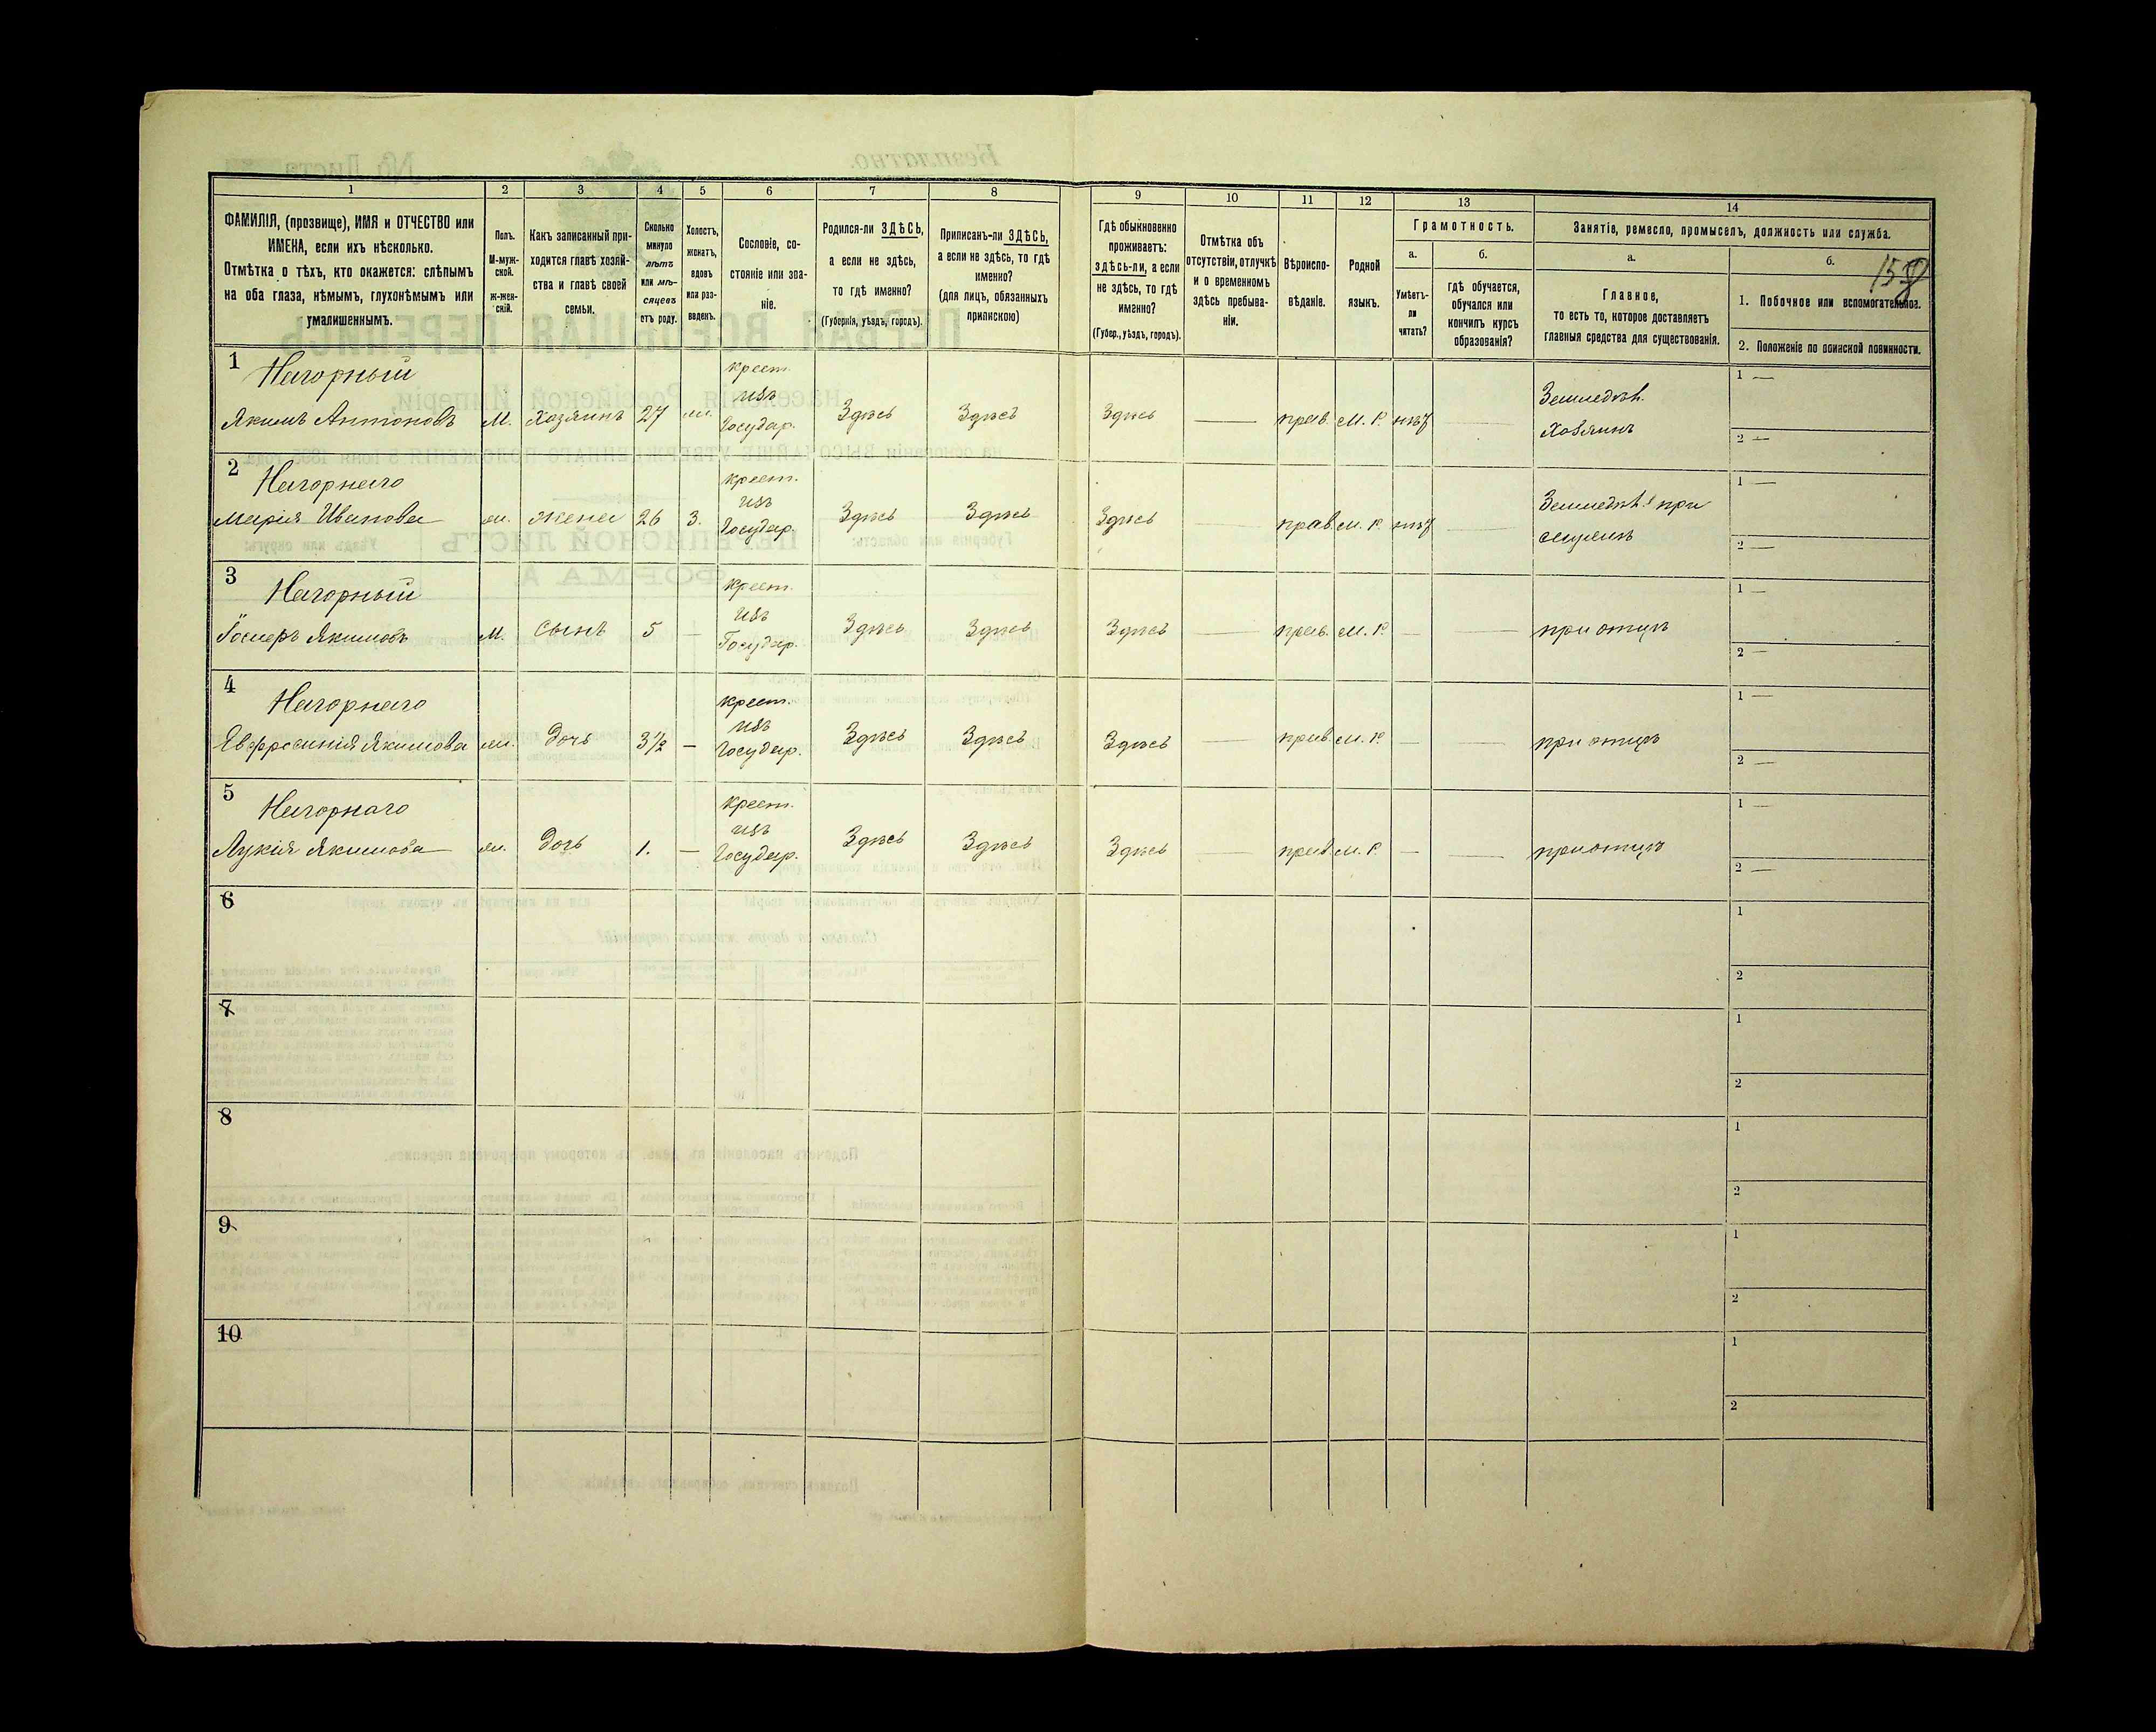 1 2 3 4 5 6 7 8 9 10 11 12 13 14
ФАМИЛІЯ, (прозвище), ИМЯ и ОТЧЕСТВО или
ИМЕНА, если ихъ нѣсколько.
Отмѣтка о тѣхъ, кто окажется: слѣпымъ
на оба глаза, нѣмымъ, глухонѣмымъ или
умалишеннымъ.
Полъ.
М-муж-
ской.
ж-жен-
скій.
Какъ записанный при-
ходится главѣ хозяй-
ства и главѣ своей
семьи.
Сколько
минуло
лѣтъ
или мѣ-
сяцевъ
отъ роду.
Холостъ,
женатъ,
вдовъ
или раз-
веденъ.
Сословіе, со-
стояніе или зва-
ніе.
Родился-ли ЗДѢСЬ,
а если не здѣсь,
то гдѣ именно?
(Губернія, уѣздъ, городъ).
Приписанъ-ли ЗДѢСЬ,
а если не здѣсь, то гдѣ
именно?
(для лицъ, обязанныхъ
припискою)
Гдѣ обыкновенно
проживаетъ:
здѣсь-ли, а если
не здѣсь, то гдѣ
именно?
(Губер., уѣздъ, городъ).
Отмѣтка объ
отсутствіи, отлучкѣ
и о временномъ
здѣсь пребыва-
ніи.
Вѣроиспо-
вѣданіе.
Родной
языкъ.
Грамотность.
а.
Умѣетъ-
ли
читать?
б.
гдѣ обучается,
обучался или
кончилъ курсъ
образованія?
Занятіе, ремесло, промыселъ, должность или служба.
а.
Главное,
то есть то, которое доставляетъ
главныя средства для существованія.
б.
1. Побочное или вспомогательное.
2. Положеніе по воинской повинности.
1
Нагорный
Якимъ Антоновъ М. Хозяинъ 27 ж. крест.
изъ
Государ. Здѣсь Здѣсь Здѣсь — прав. М. Р. нѣт — Земледѣл.
Хозяинъ
1 —
2 —
2
Нагорнаго
Марія Иванова ж. жена 26 З. крест.
изъ
Государ. Здѣсь Здѣсь Здѣсь — прав. М. Р. нѣт — Земледѣл. при
мужѣ
1 —
2 —
3
Нагорный
Якимовъ М. Сынъ 5 — крест.
изъ
Государ. Здѣсь Здѣсь Здѣсь — прав. М. Р. — — при отцѣ
1 —
2 —
4
Нагорнаго
Евфросинія Якимова ж. дочь 3½ — крест.
изъ
Государ. Здѣсь Здѣсь Здѣсь — прав. М. Р. — — при отцѣ
1 —
2 —
5
Нагорнаго
Лукія Якимова ж. дочь 1. — крест.
изъ
Государ. Здѣсь Здѣсь Здѣсь — прав. М. Р. — — при отцѣ
1 —
2 —
6
1
2
7
1
2
8
1
2
9
1
2
10
1
2